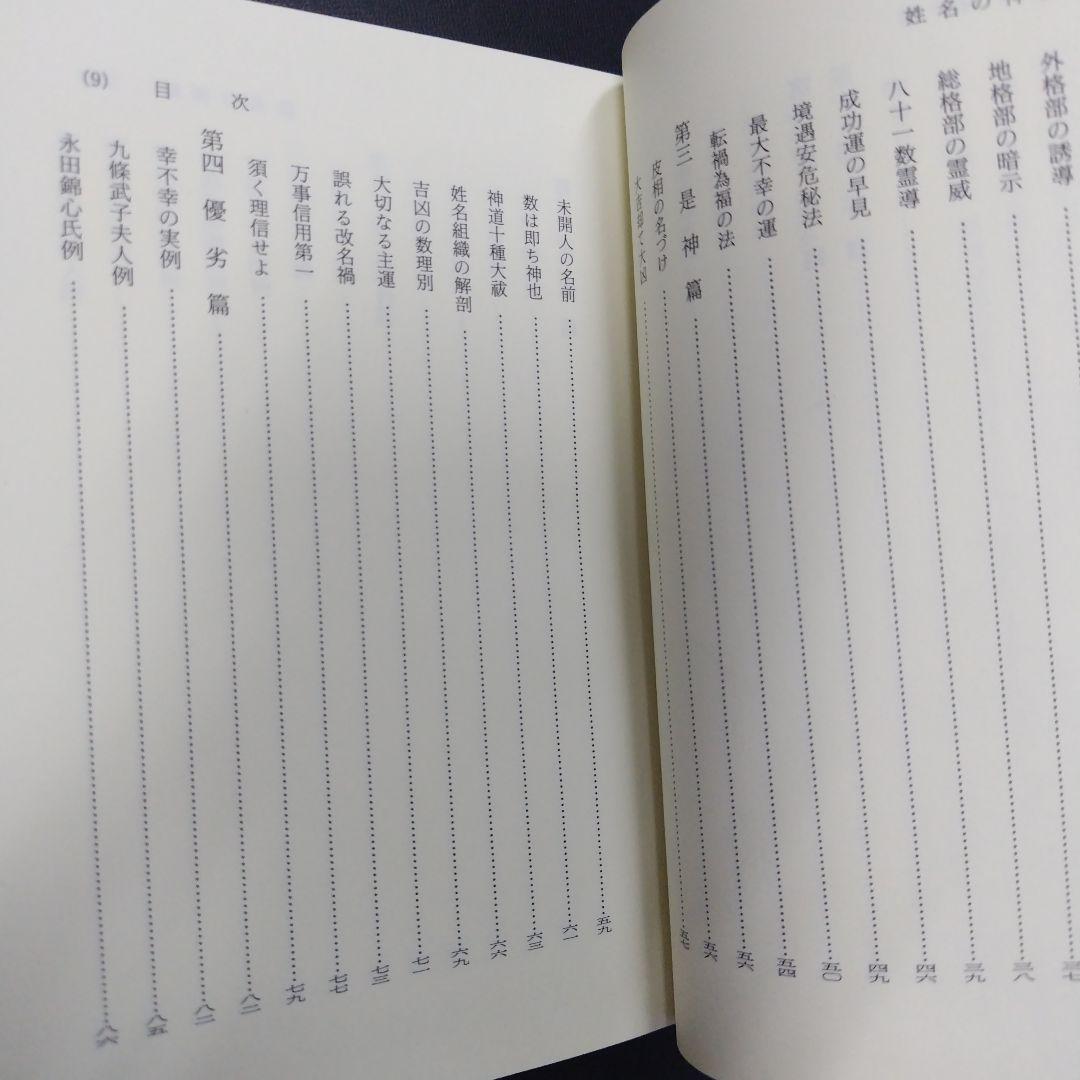 姓名の
外格部の誘導……三七
地格部の暗示……三八
総格部の霊威……三九
八十一数霊導……四六
成功運の早見……四九
境遇安危秘法……五〇
最大不幸の運……五四
転禍為福の法……五六
第三 是神篇……五六
皮相の名づけ……五七
大吉却て大凶……
未開人の名前……五九
数は即ち神也……六一
神道十種大祓……六三
姓名組織の解剖……六六
吉凶の数理別……六九
大切なる主運……七一
誤れる改名禍……七三
万事信用第一……七七
須く理信せよ……七九
第四 優劣篇……八二
幸不幸の実例……八二
九條武子夫人例……八五
永田錦心氏例……八六
(9) 目次